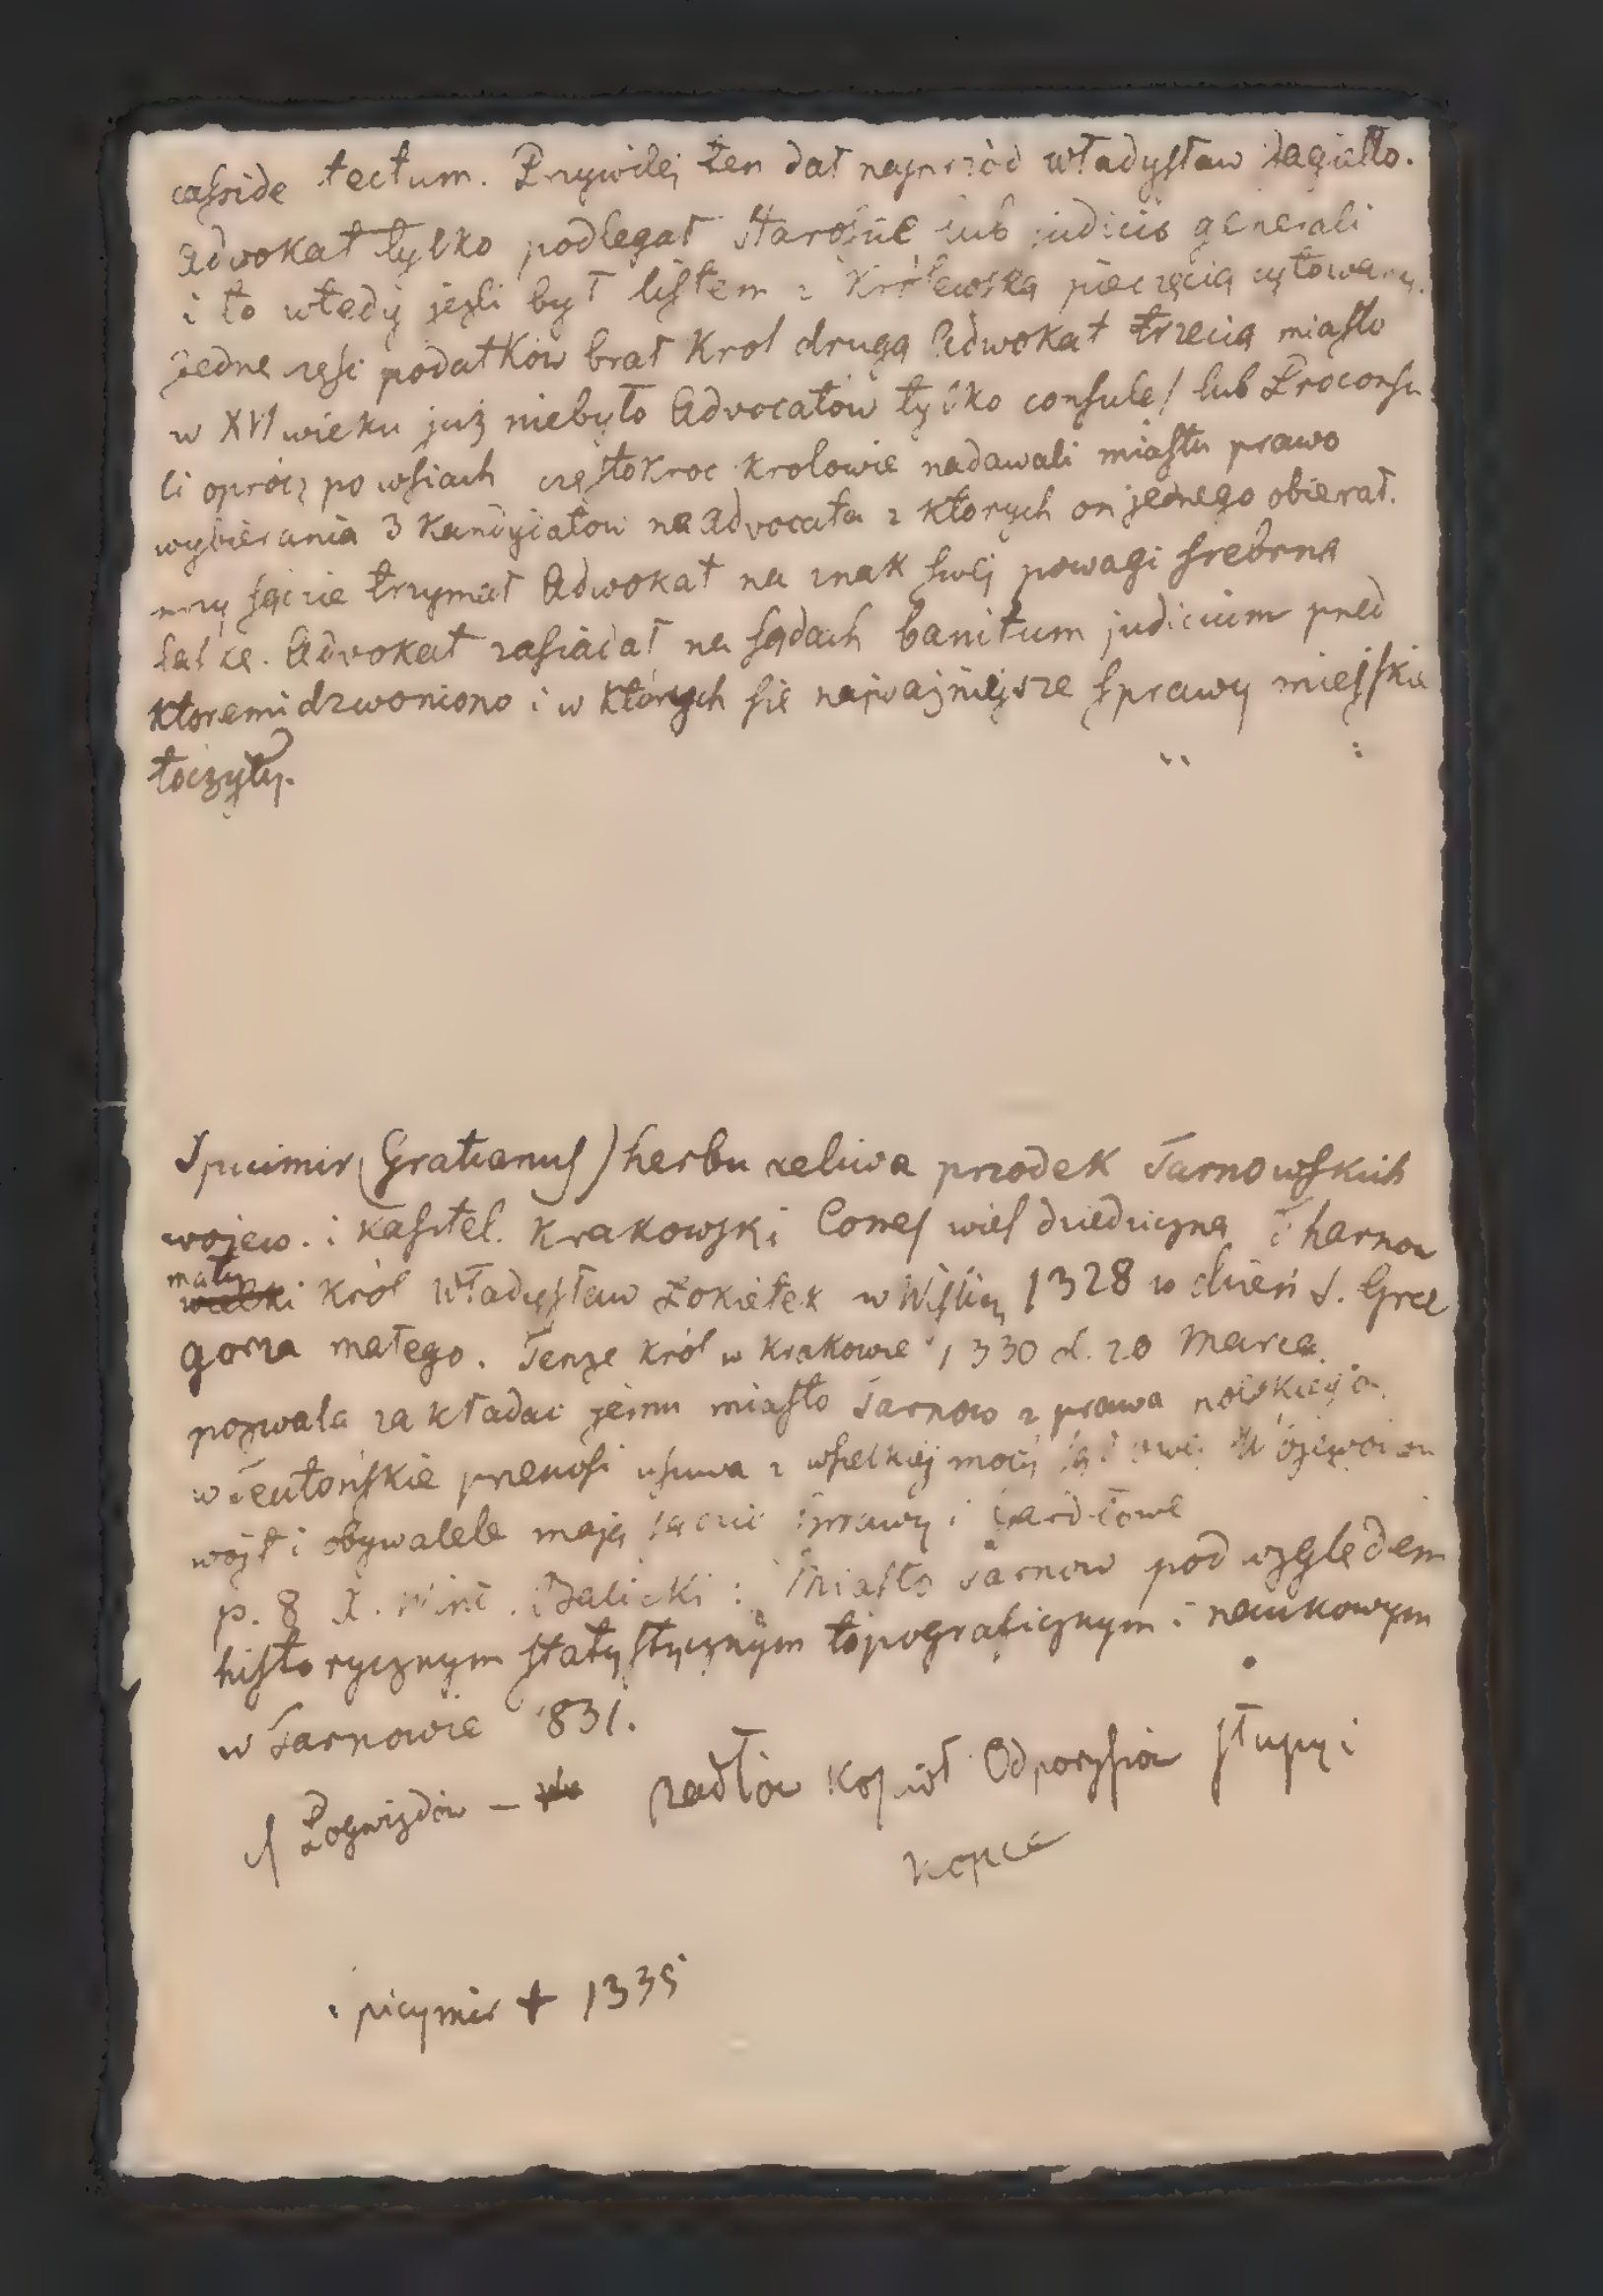 casside tectum. Przywilej ten dał najprzód Władysław Jagiełło.
Adwokat tylko podlegał Staroście lub judicio generali
i to wtedy jezli był listem z Królewską pieczęcią cytowany.
Jedne część podatków brał Krol drugą Adwokat trzecią miasto
w XVI wieku już niebyło Advocatow tylko consules lub Proconsu
li oprócz po wsiach częstokroc krolowie nadawali miastu prawo
wybierania 3 kandydatow na Advocata z ktorych on jednego obierał.
przy sądzie trzymał Adwokat na znak swej powagi srebrna
laske. Advokat zasiadał na sądach banitum judicium przed
ktoremi dzwoniono i w których sie najważniejsze sprawy miejskie
toczyły.
Spicimir (Gratianus) herbu Leliwa przodek Tarnowskich
wojew. i kasztel. Krakowski Comes wieś dziedziczna Tharnow
mały
wielki król Władysław Łokietek w Wiślicy 1328 w dzień S. Grze
gorza małego. Tenże król w Krakowie 1330 d. 20 Marca
pozwala zakładać jemu miasto Tarnow z prawa polskiego
w Teutońskie przenosi usuwa z wszelkiej mocy Wojewodow
wójt i obywatele mają sądzić sprawy i gardłowe
p. 8 X. Winc. Balicki: Miasto Tarnow pod względem
historycznym statystycznym topograficznym i naukowym
w Tarnowie 1831.
Pogwizdów – Radłów Odporyszów słupy i
kopce
Spicymir + 1335